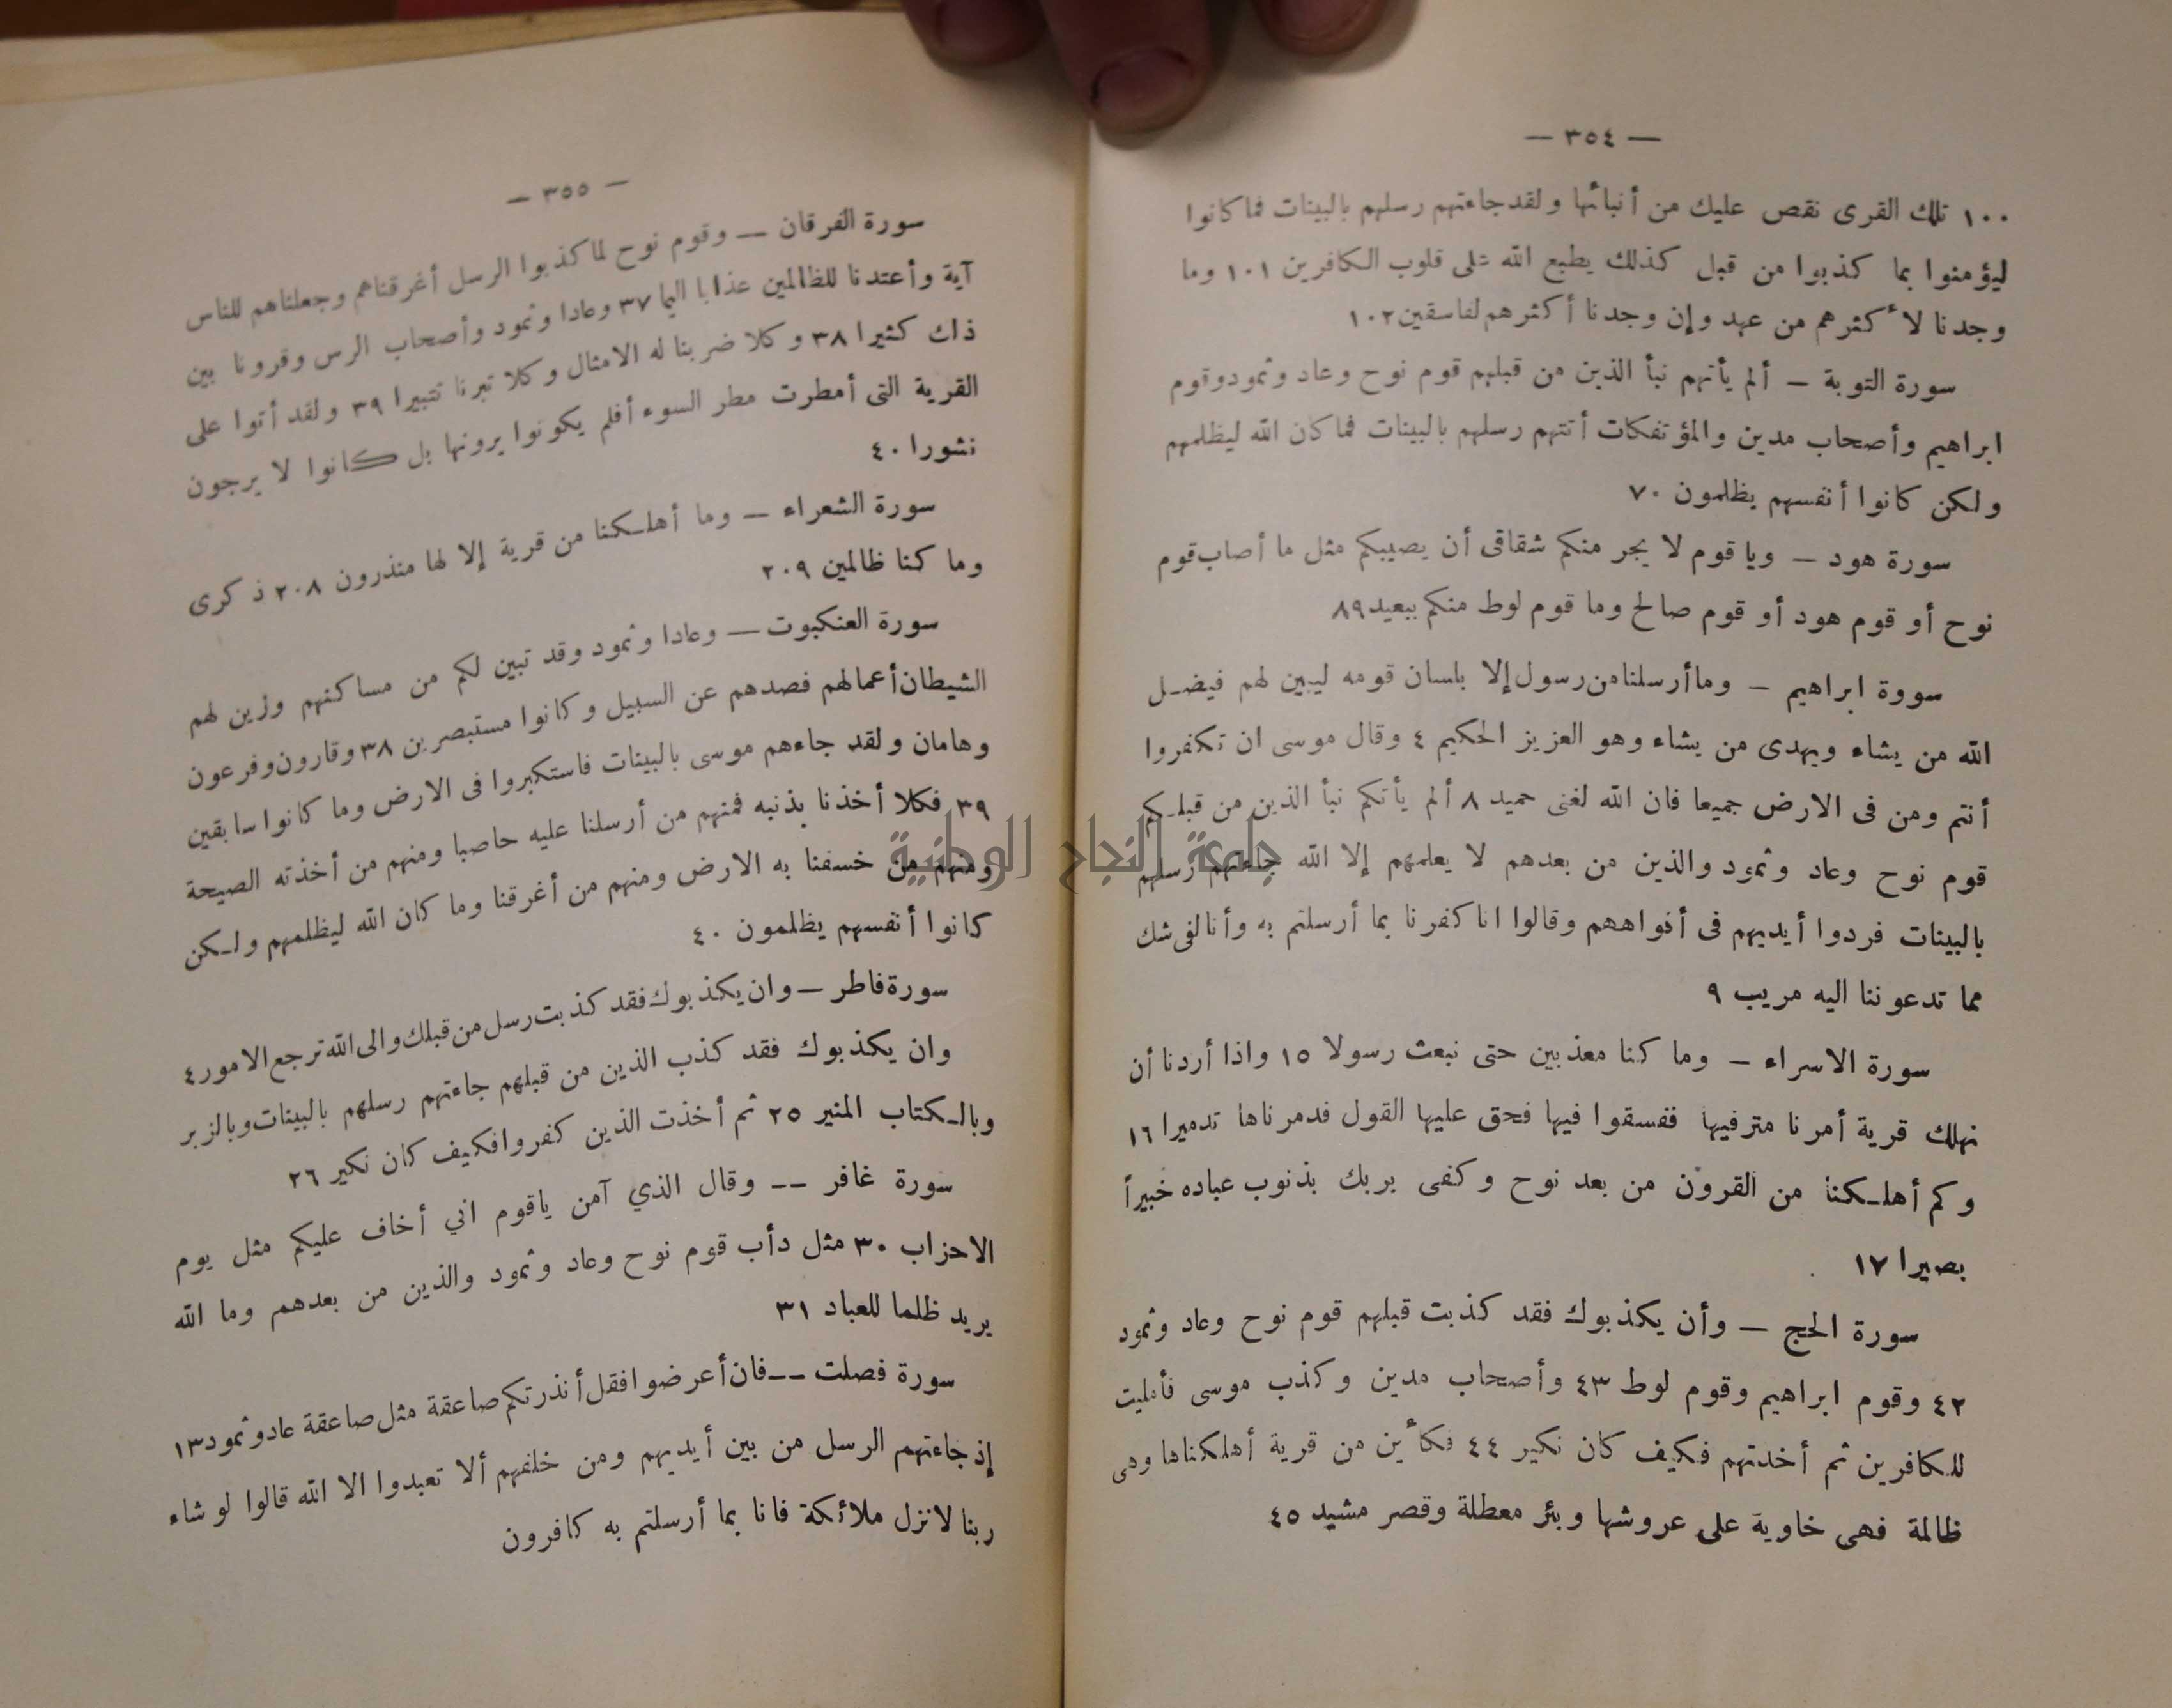 — ٣٥٤ —
١٠٠ تلك القرى نقص عليك من أنبائها ولقد جاءتهم رسلهم بالبينات فما كانوا
ليؤمنوا بما كذبوا من قبل كذلك يطبع الله على قلوب الكافرين ١٠١ وما
وجدنا لأكثرهم من عهد وإن وجدنا أكثرهم لفاسقين ١٠٢
سورة التوبة — ألم يأتهم نبأ الذين من قبلهم قوم نوح وعاد وثمود وقوم
ابراهيم وأصحاب مدين والمؤتفكات أتتهم رسلهم بالبينات فما كان الله ليظلمهم
ولكن كانوا أنفسهم يظلمون ٧٠
سورة هود — ويا قوم لا يجر منكم شقاقى أن يصيبكم مثل ما أصاب قوم
نوح أو قوم هود أو قوم صالح وما قوم لوط منكم ببعيد ٨٩
سووة ابراهيم — وما أرسلنا من رسول إلا بلسان قومه ليبين لهم فيضل
الله من يشاء ويهدى من يشاء وهو العزيز الحكيم ٤ وقال موسى ان تكفروا
أنتم ومن فى الارض جميعا فان الله لغنى حميد ٨ ألم يأتكم نبأ الذين من قبلكم
قوم نوح وعاد وثمود والذين من بعدهم لا يعلمهم إلا الله جاءتهم رسلهم
بالبينات فردوا أيديهم فى أفواههم وقالوا انا كفرنا بما أرسلتم به وأنا لفى شك
مما تدعوننا اليه مريب ٩
سورة الاسراء — وما كنا معذبين حتى نبعث رسولا ١٥ واذا أردنا أن
نهلك قرية أمرنا مترفيها ففسقوا فيها فحق عليها القول فدمرناها تدميرا ١٦
وكم أهلكنا من القرون من بعد نوح وكفى بربك بذنوب عباده خبيراً
بصيرا ١٧
سورة الحج — وأن يكذبوك فقد كذبت قبلهم قوم نوح وعاد وثمود
٤٢ وقوم ابراهيم وقوم لوط ٤٣ وأصحاب مدين وكذب موسى فأمليت
للكافرين ثم أخذتهم فكيف كان نكير ٤٤ فكأين من قرية أهلكناها وهى
ظالمة فهى خاوية على عروشها وبئر معطلة وقصر مشيد ٤٥
— ٣٥٥ —
سورة الفرقان — وقوم نوح لما كذبوا الرسل أغرقناهم وجعلناهم للناس
آية وأعتدنا للظالمين عذابا اليما ٣٧ وعادا وثمود وأصحاب الرس وقرونا بين
ذلك كثيرا ٣٨ وكلا ضربنا له الامثال وكلا تبرنا تتبيرا ٣٩ ولقد أتوا على
القرية التى أمطرت مطر السوء أفلم يكونوا يرونها بل كانوا لا يرجون
نشورا ٤٠
سورة الشعراء — وما أهلكنا من قرية إلا لها منذرون ٢٠٨ ذكرى
وما كنا ظالمين ٢٠٩
سورة العنكبوت — وعادا وثمود وقد تبين لكم من مساكنهم وزين لهم
الشيطان أعمالهم فصدهم عن السبيل وكانوا مستبصرين ٣٨ وقارون وفرعون
وهامان ولقد جاءهم موسى بالبينات فاستكبروا فى الارض وما كانوا سابقين
٣٩ فكلا أخذنا بذنبه فمنهم من أرسلنا عليه حاصبا ومنهم من أخذته الصيحة
ومنهم من خسفنا به الارض ومنهم من أغرقنا وما كان الله ليظلمهم ولكن
كانوا أنفسهم يظلمون ٤٠
سورة فاطر — وان يكذبوك فقد كذبت رسل من قبلك والى الله ترجع الامور ٤
وان يكذبوك فقد كذب الذين من قبلهم جاءتهم رسلهم بالبينات وبالزبر
وبالكتاب المنير ٢٥ ثم أخذت الذين كفروا فكيف كان نكير ٢٦
سورة غافر -- وقال الذي آمن ياقوم اني أخاف عليكم مثل يوم
الاحزاب ٣٠ مثل دأب قوم نوح وعاد وثمود والذين من بعدهم وما الله
يريد ظلما للعباد ٣١
سورة فصلت -- فان أعرضوا فقل أنذرتكم صاعقة مثل صاعقة عاد وثمود ١٣
إذ جاءتهم الرسل من بين أيديهم ومن خلفهم ألا تعبدوا الا الله قالوا لو شاء
ربنا لانزل ملائكة فانا بما أرسلتم به كافرون
جامعة النجاح الوطنية